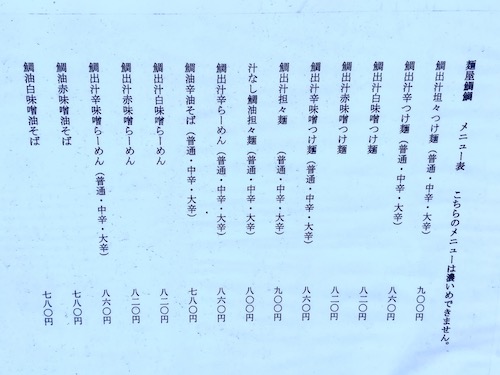 麺屋鯛鯛　メニュー表　こちらのメニューは濃いめできません。
鯛出汁坦々つけ麺（普通・中辛・大辛）　九〇〇円
鯛出汁辛つけ麺（普通・中辛・大辛）　八六〇円
鯛出汁白味噌つけ麺　八二〇円
鯛出汁赤味噌つけ麺　八二〇円
鯛出汁辛味噌つけ麺（普通・中辛・大辛）　八六〇円
鯛出汁担々麺　（普通・中辛・大辛）　九〇〇円
汁なし鯛油担々麺（普通・中辛・大辛）　八〇〇円
鯛出汁辛らーめん（普通・中辛・大辛）　八六〇円
鯛油辛油そば（普通・中辛・大辛）　七八〇円
鯛出汁白味噌らーめん　八二〇円
鯛出汁赤味噌らーめん　八二〇円
鯛出汁辛味噌らーめん（普通・中辛・大辛）　八六〇円
鯛油赤味噌油そば　七八〇円
鯛油白味噌油そば　七八〇円